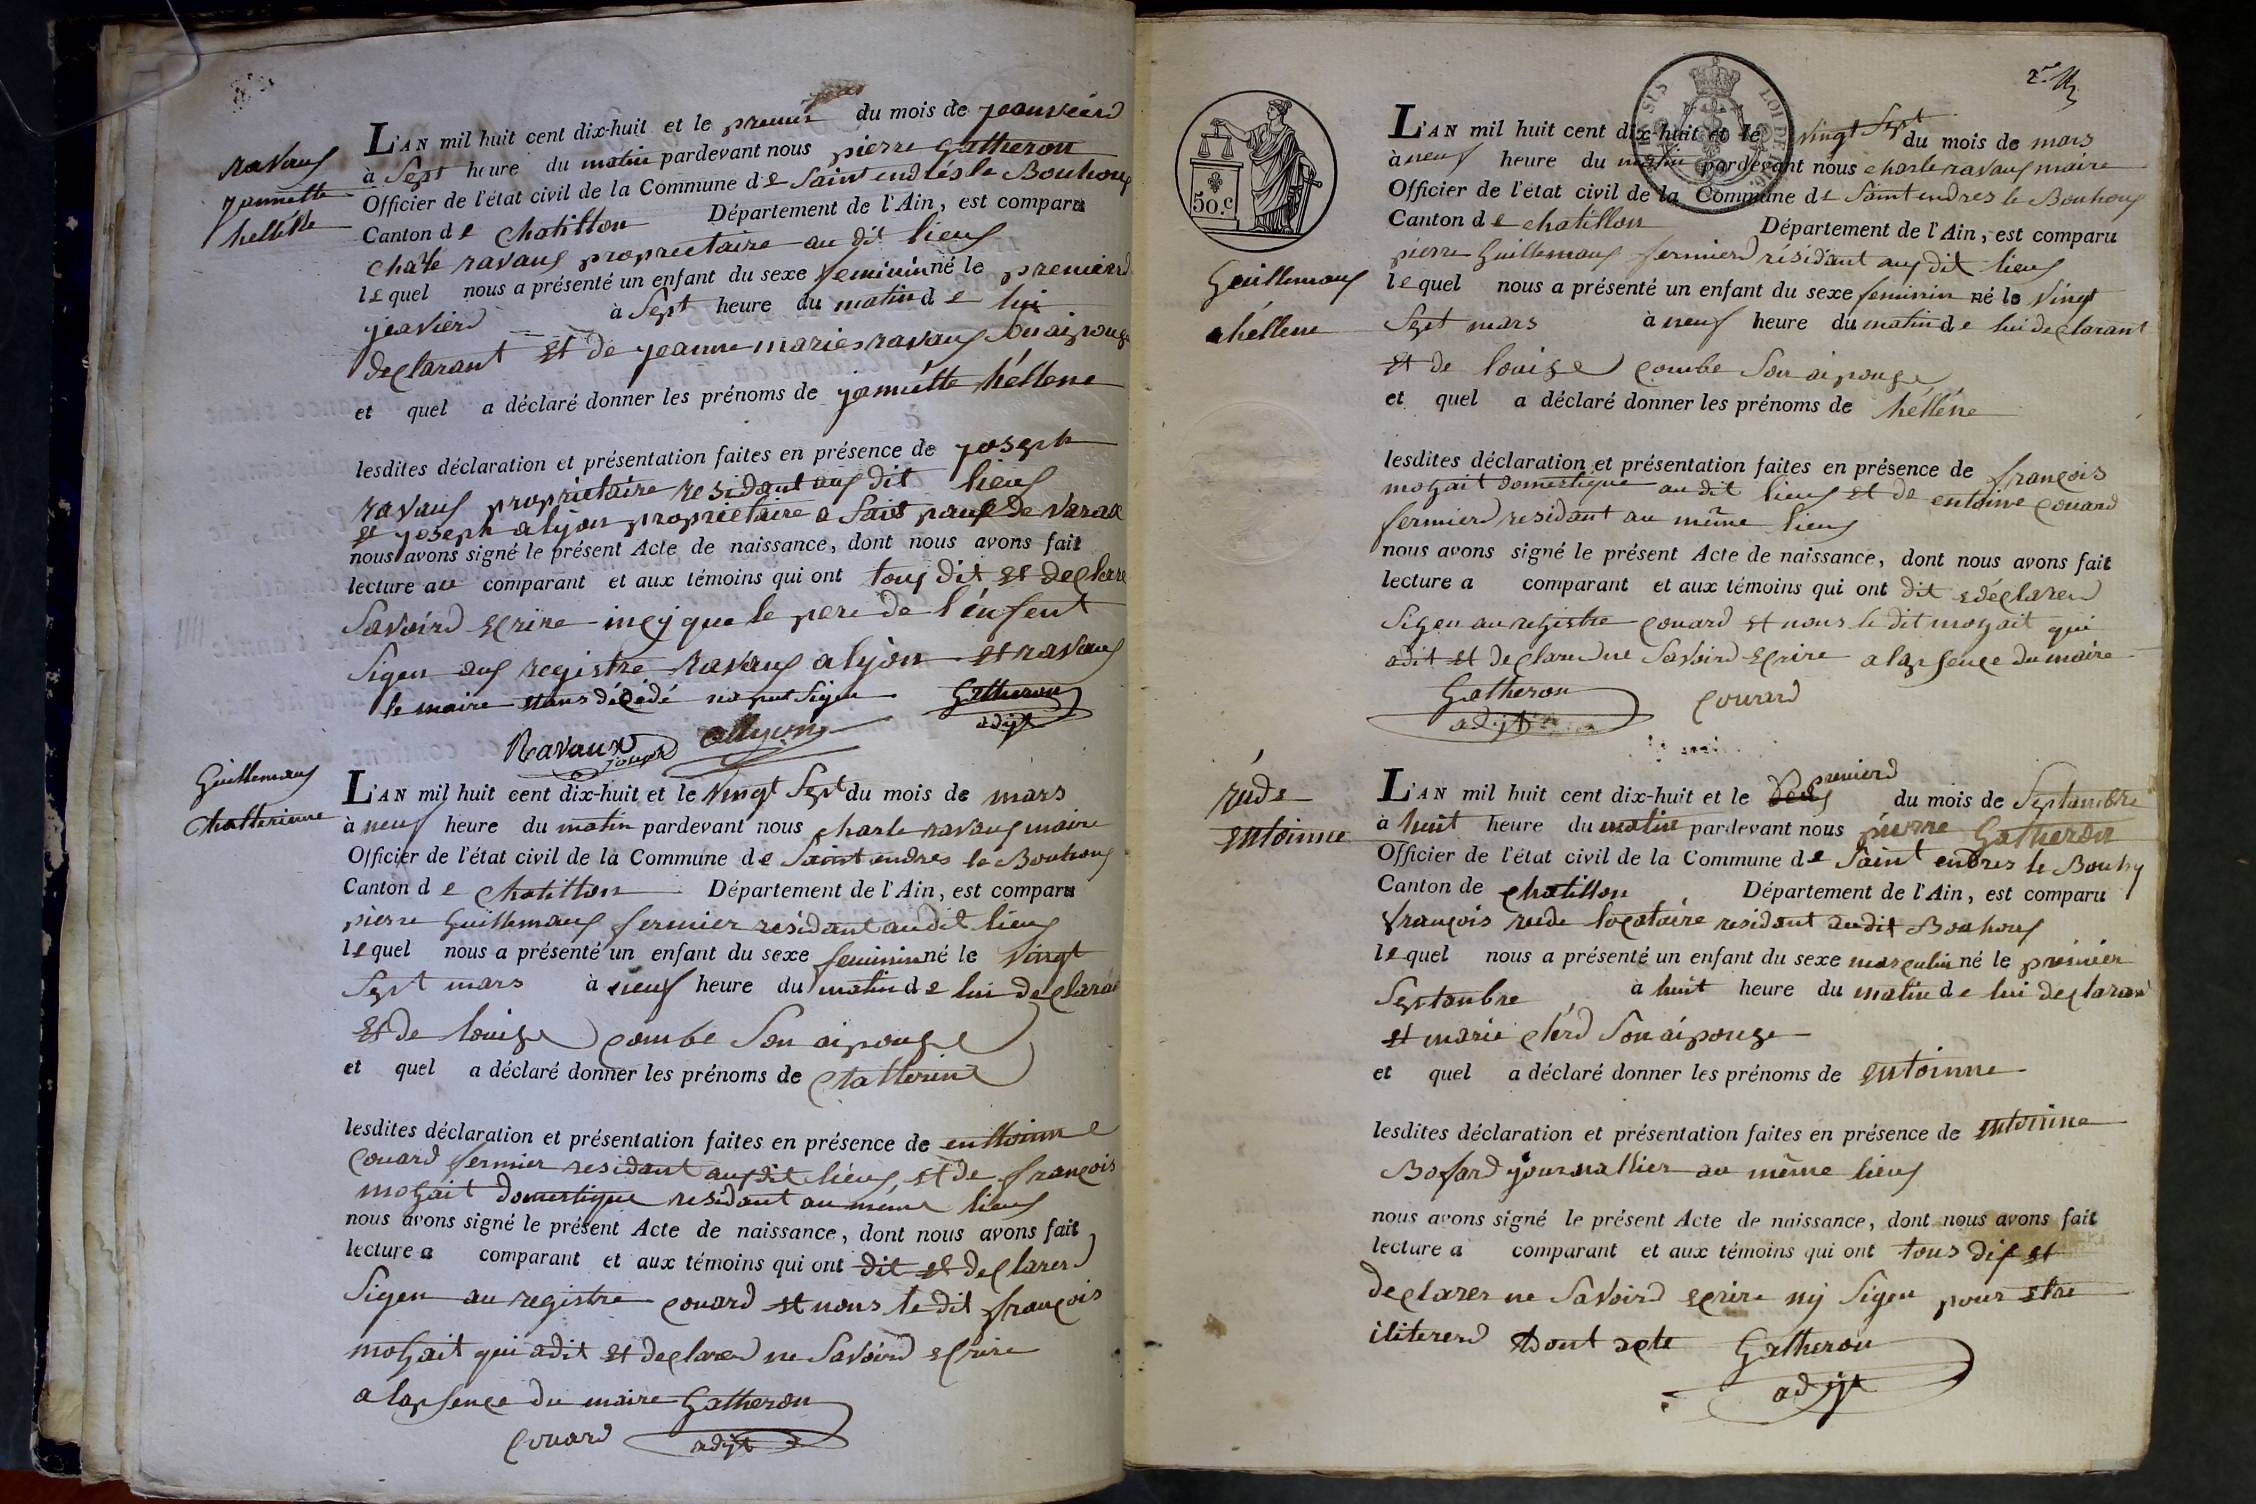 ravaus
jannette
hellene
L'AN mil huit cent dix-huit et le premier du mois de jeanvierd
à Sept heure du matin pardevant nous pierre gatheron
Officier de l'état civil de la Commune de Saint endrés le Bouhous
Canton de chatillon Département de l'Ain, est comparu
charle ravaus propriettaire au dit lieus
lequel nous a présenté un enfant du sexe feminin né le premierd
jeavierd à Sept heure du matin de lui
declarant et de jeanne maries ravaus Son aipouze
et quel a déclaré donner les prénoms de jannétte héllene
lesdites déclaration et présentation faites en présence de joseph
ravaus propriétaire residant aus dit lieus
et joseph alyon proprietaire a Saint paul de varax
nous avons signé le présent Acte de naissance, dont nous avons fait
lecture au comparant et aux témoins qui ont tous dit et declare
Savoird ecrire incy que le pere de l'énfent
Signer aus registre ravaus alyon et ravaus
le maire etans décédé na put Signer Gatheron
adjt
Ravaux joseph allyon
Guillemaus
Chatterienne
L'AN mil huit cent dix-huit et le vingt Sept du mois de mars
à neuf heure du matin pardevant nous charle ravaus maire
Officier de l'état civil de la Commune de Saint endres le Bouhous
Canton de chatillon Département de l'Ain, est comparu
pierre Guillemaus fermier residant audit lieus
lequel nous a présenté un enfant du sexe feminin né le vingt
Sept mars à neuf heure du matin de lui declarant
et de louize combe Son aipouze
et quel a déclaré donner les prénoms de Catterine
lesdites déclaration et présentation faites en présence de enttoinne
couard fermier residant ausdit liéus, et de françois
mozait domestique residant au méme lieus
nous avons signé le présent Acte de naissance, dont nous avons fait
lecture a comparant et aux témoins qui ont dit et declarer
Signer au registre couard et nous le dit françois
mozait qui adit et declared ne Savoird ecrire
a lapsence du maire Gatheron
couard adjt
2e
50.c
LOI DE
Guillemaus
ahéllene
L'AN mil huit cent dix-huit et le vingt Sept du mois de mars
à neuf heure du matin pardevant nous charle ravaus maire
Officier de l'état civil de la Commune de Saint endres le Bouhous
Canton de chatillon Département de l'Ain, est comparu
pierre Guillemaus fermierd résidant aus dit lieus
lequel nous a présenté un enfant du sexe feminin né le vingt
Sept mars à neuf heure du matin de lui declarant
et de louize combe Son aipouze
et quel a déclaré donner les prénoms de héllene
lesdites déclaration et présentation faites en présence de françois
mozait domestique au dit lieus et de entoine couard
fermierd residant au même lieus
nous avons signé le présent Acte de naissance, dont nous avons fait
lecture a comparant et aux témoins qui ont dit edéclarerd
Signer au registre couard et nous le dit mozait qui
adit et declared ne Savoird ecrire a lapsence du maire
Gatheron couard
adjt
rude
entoinne
L'AN mil huit cent dix-huit et le premierd du mois de Septambre
à huit heure du matin pardevant nous pierre Gatheron
Officier de l'état civil de la Commune de Saint endres le Bouhy
Canton de chatillon Département de l'Ain, est comparu
françois rude locataire residant audit Bouhous
lequel nous a présenté un enfant du sexe masculin né le prémier
Septanbre à huit heure du matin de lui declarant
et marie clérd Son aipouze
et quel a déclaré donner les prénoms de entoinne
lesdites déclaration et présentation faites en présence de entoinne
Bofard journallier au même lieus
nous avons signé le présent Acte de naissance, dont nous avons fait
lecture a comparant et aux témoins qui ont tous dit et
declarer ne Savoird ecrire ny Signer pour etre
ilitererd dont acte Gatheron
adjt